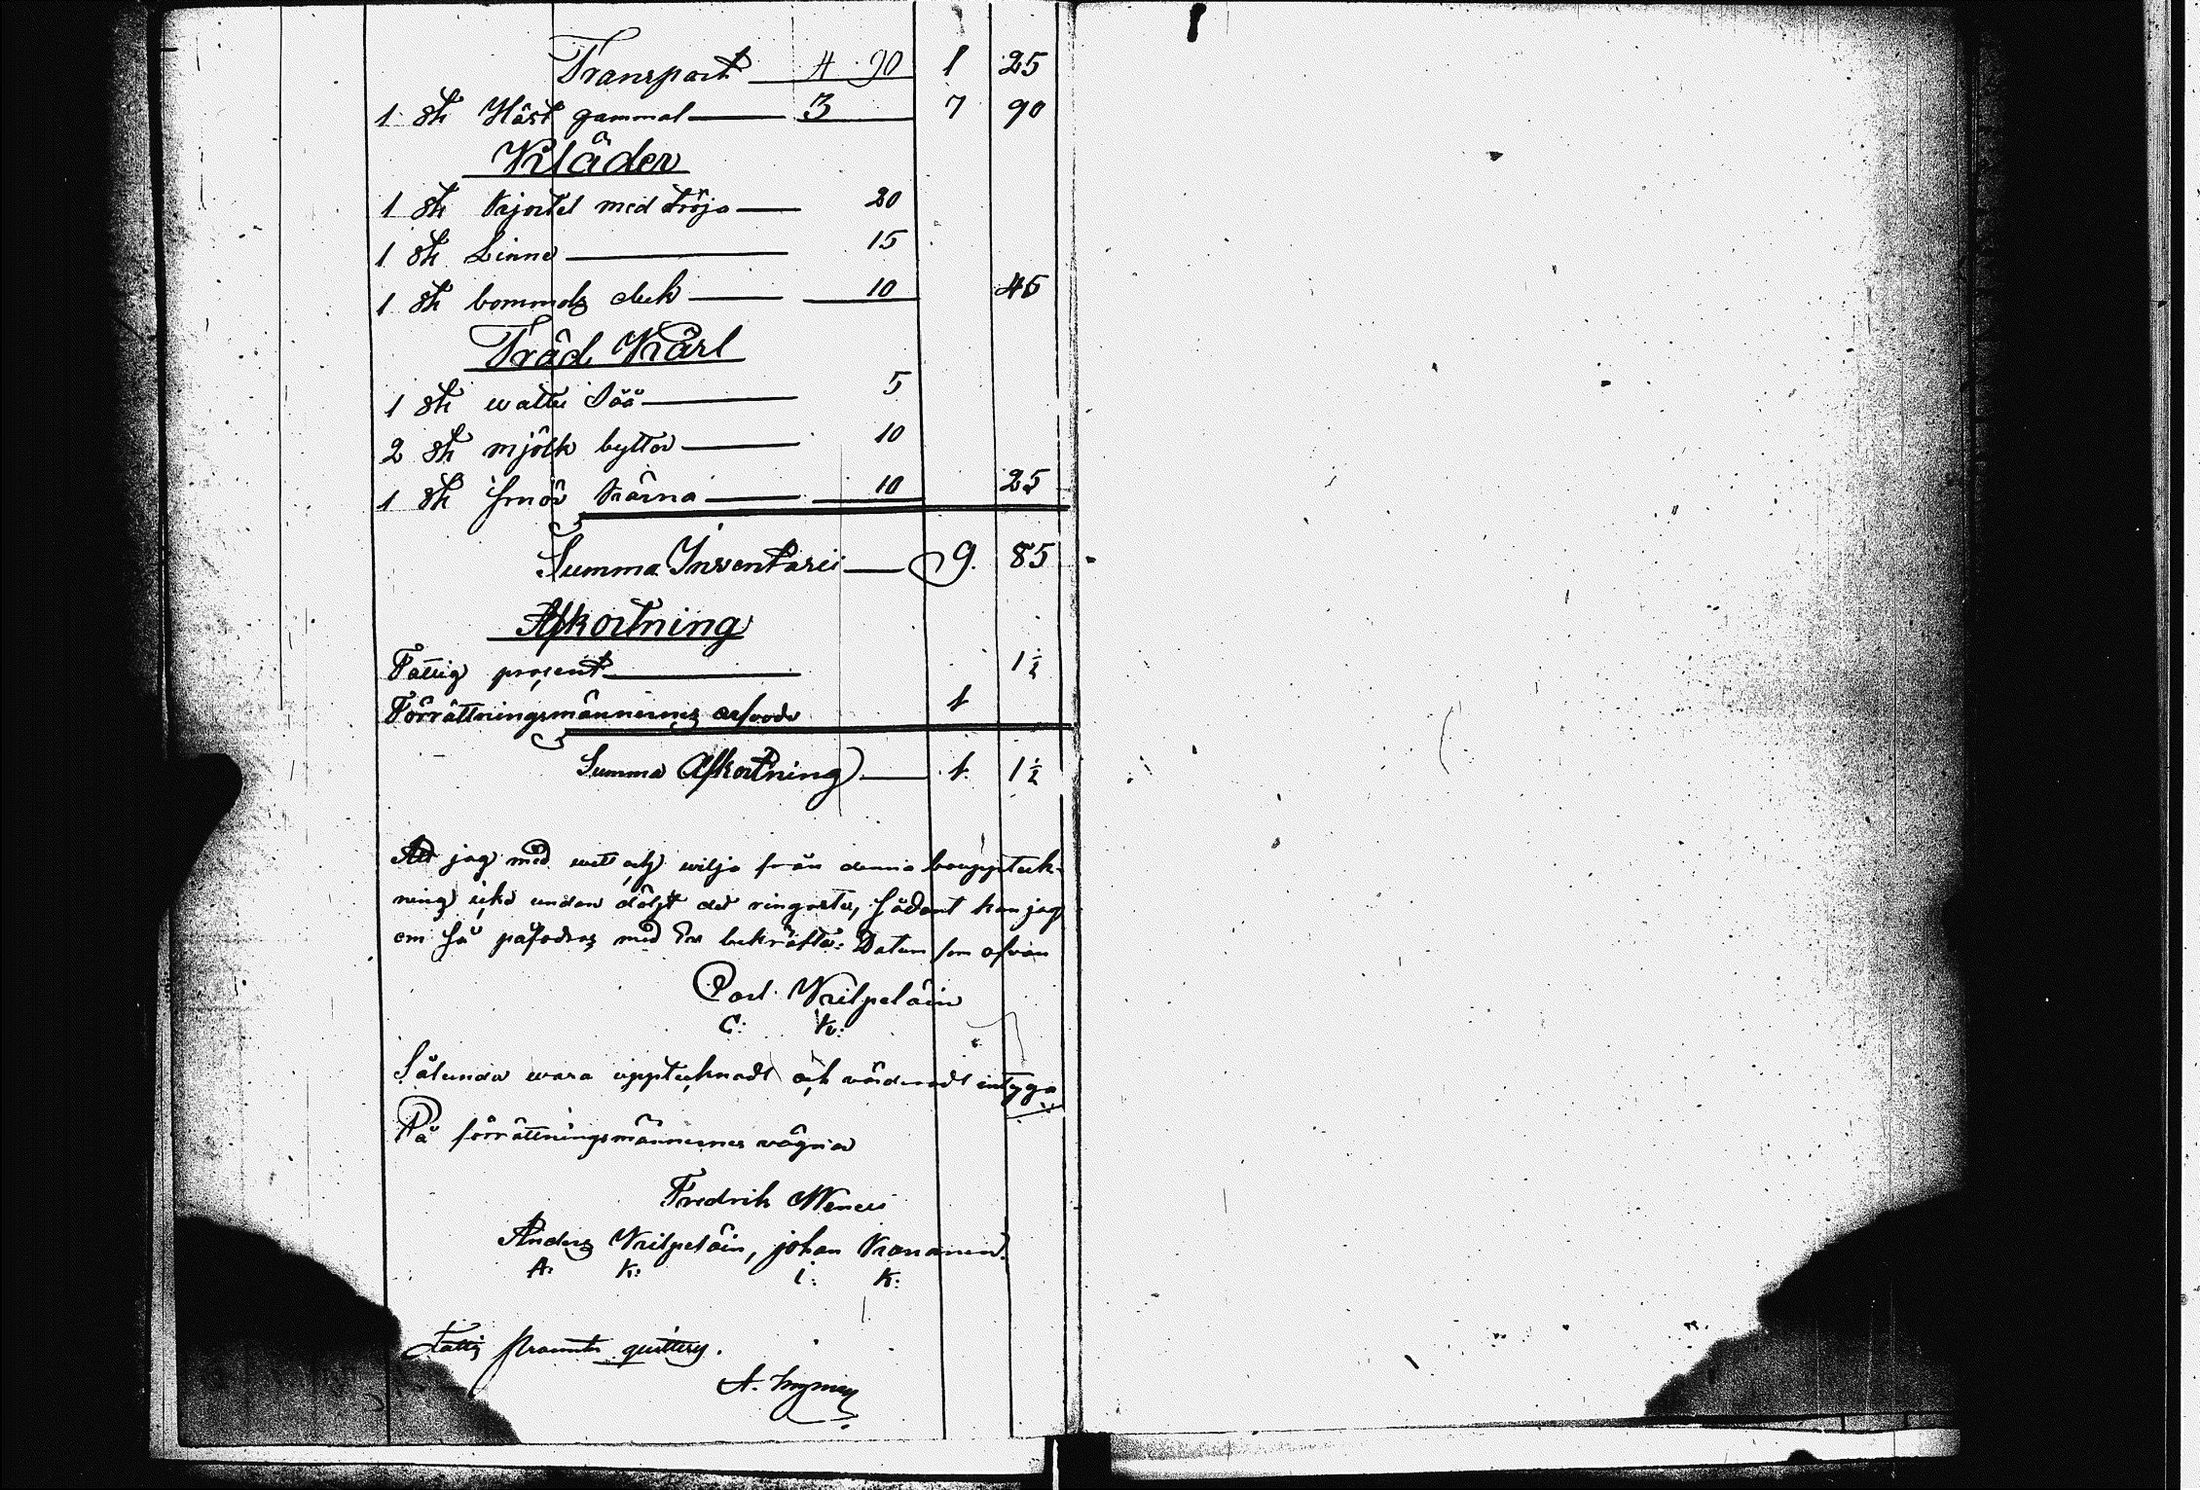 Transport — 4 90 1 25
1 st Häst gammal — 3 7 90
Kläder
1 st Kjortel med tröja — 20
1 st Linne — 15
1 st bommols duk — 10 45
Träd Kärl
1 st watten Såå — 5
2 st mjölk byttor — 10
1 st smör kärna — 10 25
Summa Inventarii — 9. 85
Afkortning
Fattig procent — 1 ½
Förrättningsmännernes arfvode 1
Summa Afkortning — 1 1 ½
Att jag med wett och wilja från denna bouppteck-
ning icke undan döljt det ringaste, sådant kan jag
om så påfodras med Ed bekräfta: Datum som ofvan
Carl Kilpeläin
C: K:
Sålunda wara upptecknadt och värderadt intyga
På förrättningsmännernes vägnar
Fredrik
Anders Kilpeläin, johan
A: K: i: K:
Fattig Procento quitteras.
A.